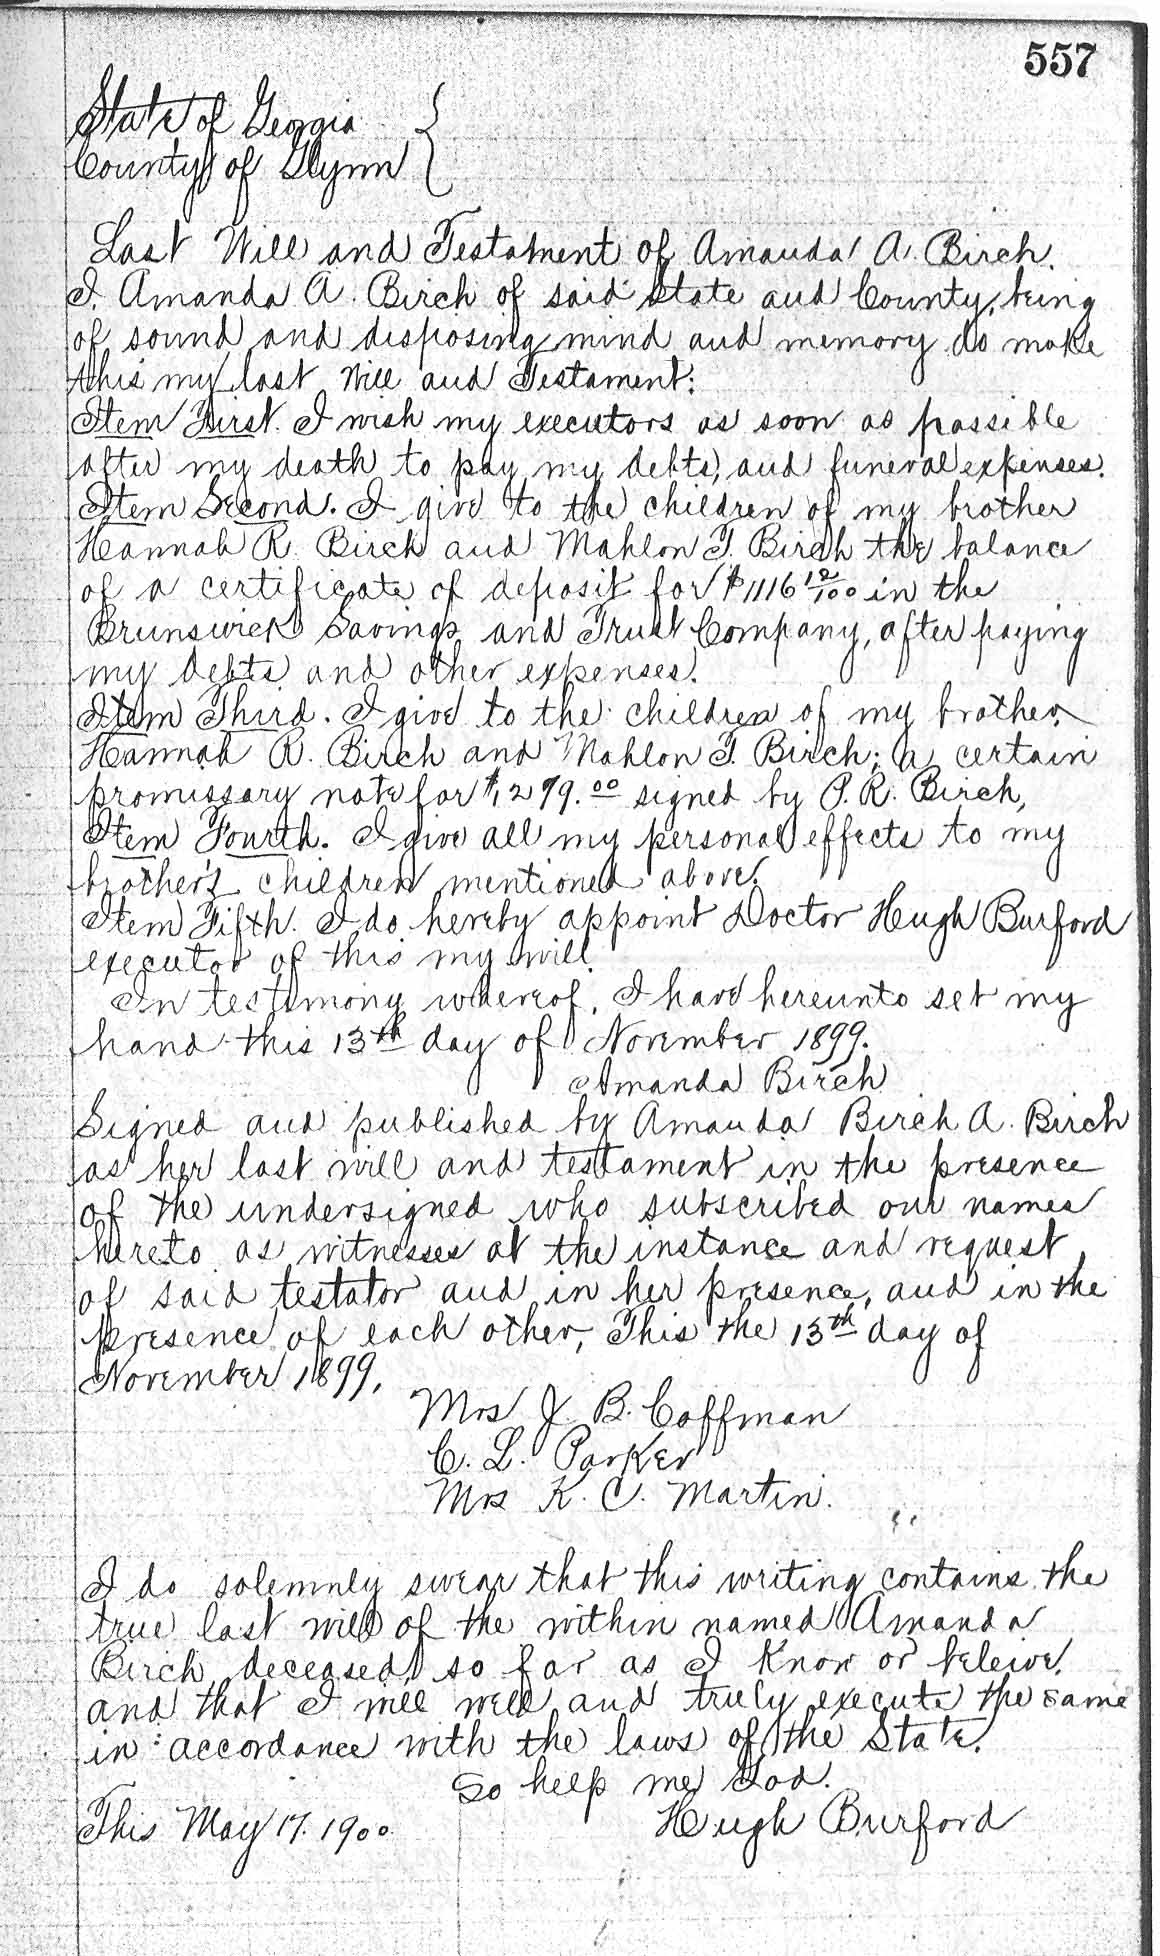 557
State of Georgia {
County of Glynn
Last Will and Testatment of Amanda A. Birch.
I, Amanda A. Birch of said State and County, being
of sound and disposing mind and memory do make
this my last Will and Testament:
Item First. I wish my executors as soon as possible
after my death to pay my debts, and funeral expenses.
Item Second. I give to the children of my brother
Hannah R. Birch and Mahlon T. Birch the balance
of a certificate of deposit for $1116 12/100 in the
Brunswick Savings and Trust Company, after paying
my debts and other expenses.
Item Third. I give to the children of my brother,
Hannah R. Birch and Mahlon T. Birch; a certain
promissary note for $1279.00 signed by P. R. Birch,
Item Fourth. I give all my personal effects to my
brother's children mentioned above.
Item Fifth. I do hereby appoint Doctor Hugh Burford
executor of this my will.
In testimony whereof, I have hereunto set my
hand this 13th day of November 1899.
Amanda Birch
Signed and published by Amanda Birch A. Birch
as her last will and testament in the presence
of the undersigned who subscribed our names
hereto as witnesses at the instance and request
of said testator and in her presence, and in the
presence of each other, This the 13th day of
November 1899.
Mrs J. B. Coffman
C. L. Parker
Mrs K. C. Martin.
I do solemnly swear that this writing contains the
true last will of the within named Amanda
Birch, deceased, so far as I know or beleive.
and that I will well and truly execute the same
in accordance with the laws of the State.
So help me God.
This May 17. 1900 Hugh Burford